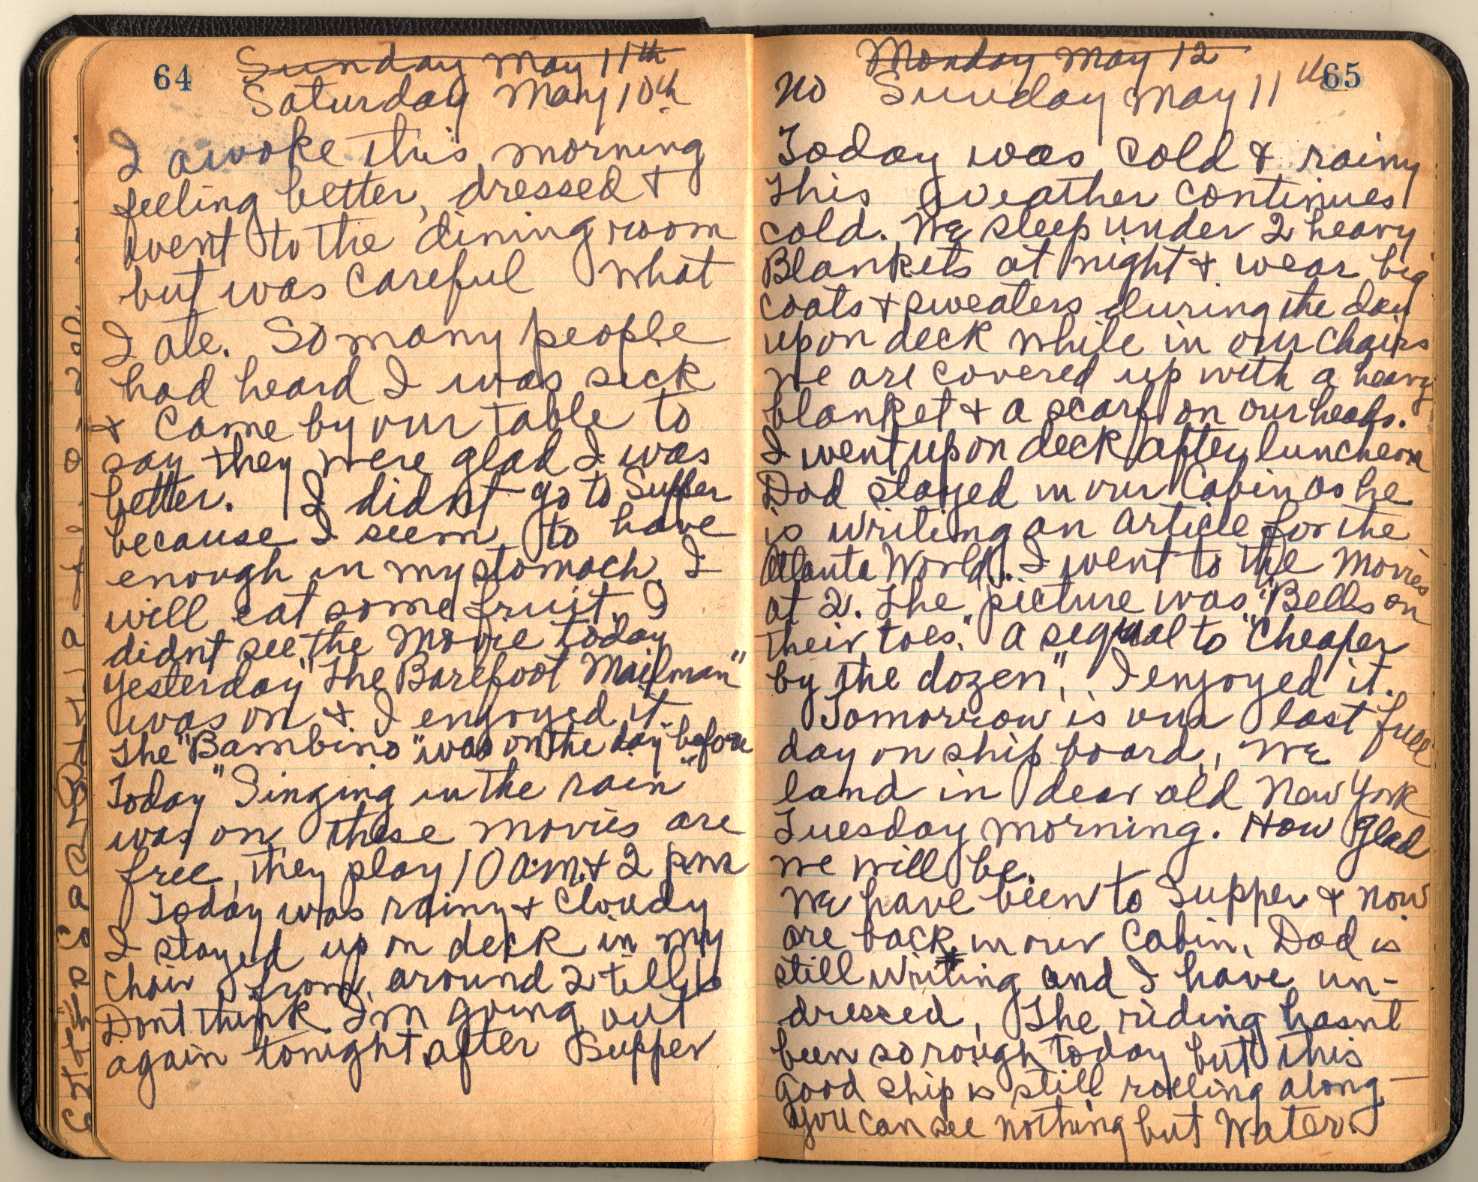 64
Sunday May 11th
Saturday May 10th
I awoke this morning
feeling better, dressed &
went to the dining room
but was careful what
I ate. So many people
had heard I was sick
& came by our table to
say they were glad I was
better. I didnt go to Supper
because I seem to have
enough in my stomach. I
will eat some fruit. I
didnt see the Movie today
yesterday "The Barefoot Mailman"
was on & I enjoyed it.
The "Bambino" was on the day before
Today "Singing in the rain"
was on, these movies are
free, they play 10 a.m. & 2 p.m.
Today was rainy & cloudy
I stayed up on deck in my
chair from around 2 till
Dont think I'm going out
again tonight after Supper
65
Monday May 12
no Sunday May 11th
Today was cold & rainy
This weather continues
cold. We sleep under 2 heavy
Blankets at night & wear big
coats & sweaters during the day
upon deck while in our chairs
we are covered up with a heavy
blanket & a scarf on our heads.
I went up on deck after luncheon
Dad stayed in our Cabin as he
is writing an article for the
Atlanta World. I went to the Movies
at 2. The picture was "Bells on
their toes." a sequal to "Cheaper
by the dozen", I enjoyed it.
Tomorrow is our last full
day on ship board, We
land in dear old New York
Tuesday morning. How glad
we will be.
We have been to Supper & now
are back in our Cabin, Dad is
still writing and I have un-
dressed, The riding hasnt
been so rough today but this
good ship is still rolling along-
you can see nothing but Water.